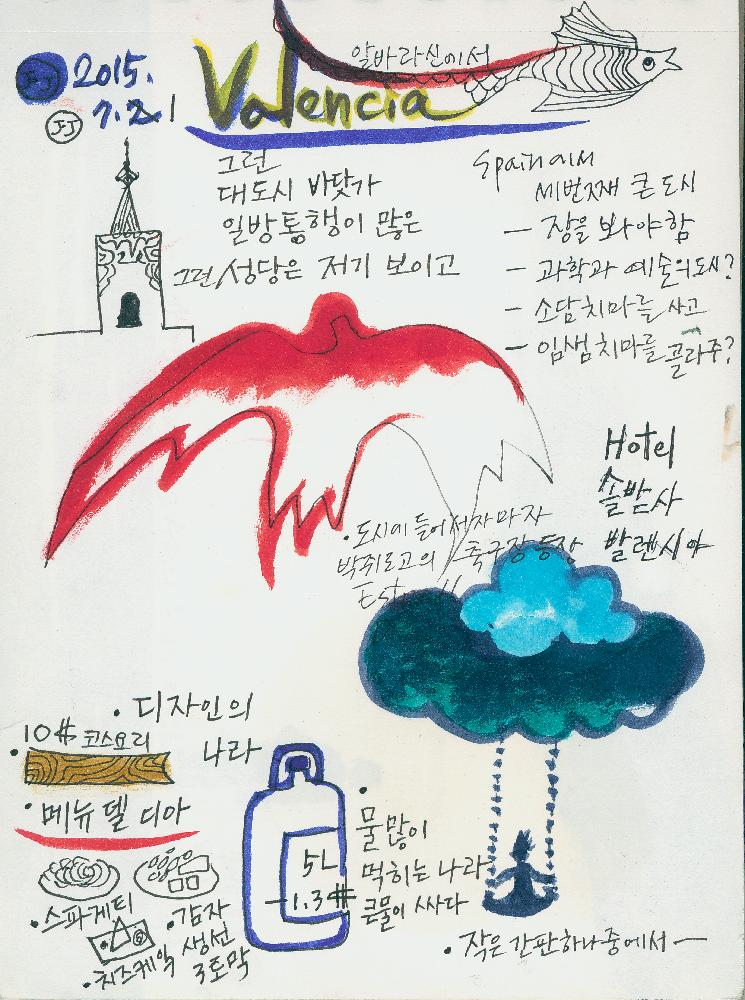 2015.
7.2.1
J-J
Valencia
알바라신에서
그런
대도시 바닷가
일방통행이 많은
그런 성당은 저기 보이고
Spain에서
세번째 큰 도시
- 장을 봐야함
- 과학과 예술의도시?
- 소담치마를 사고
- 임샘치마를 골라주?
Hotel
솔밭사
발렌시아
· 도시에 들어서자마자
박쥐로고의 축구장 등장
Est
· 디자인의
나라
· 10# 코스요리
· 메뉴 델 디아
· 스파게티
· 감자
생선
3토막
· 치즈케익
5L
-1.3#
· 물많이
먹히는 나라
큰물이 싸다
· 작은 간판하나중에서 -